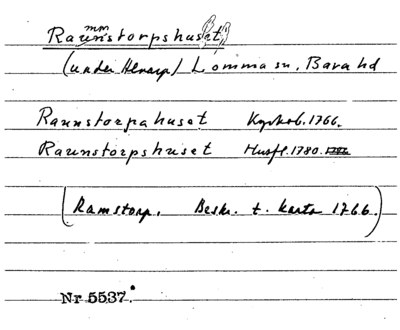 mm
Raunstorpshuset
(under Alnarp) Lomma sn, Bara hd
Raunstorpahuset Kyrkob. 1766.
Raunstorpshuset Husfl. 1780.
(Ramstorp. Beskr. t. karta 1766.)
Nr 5537.